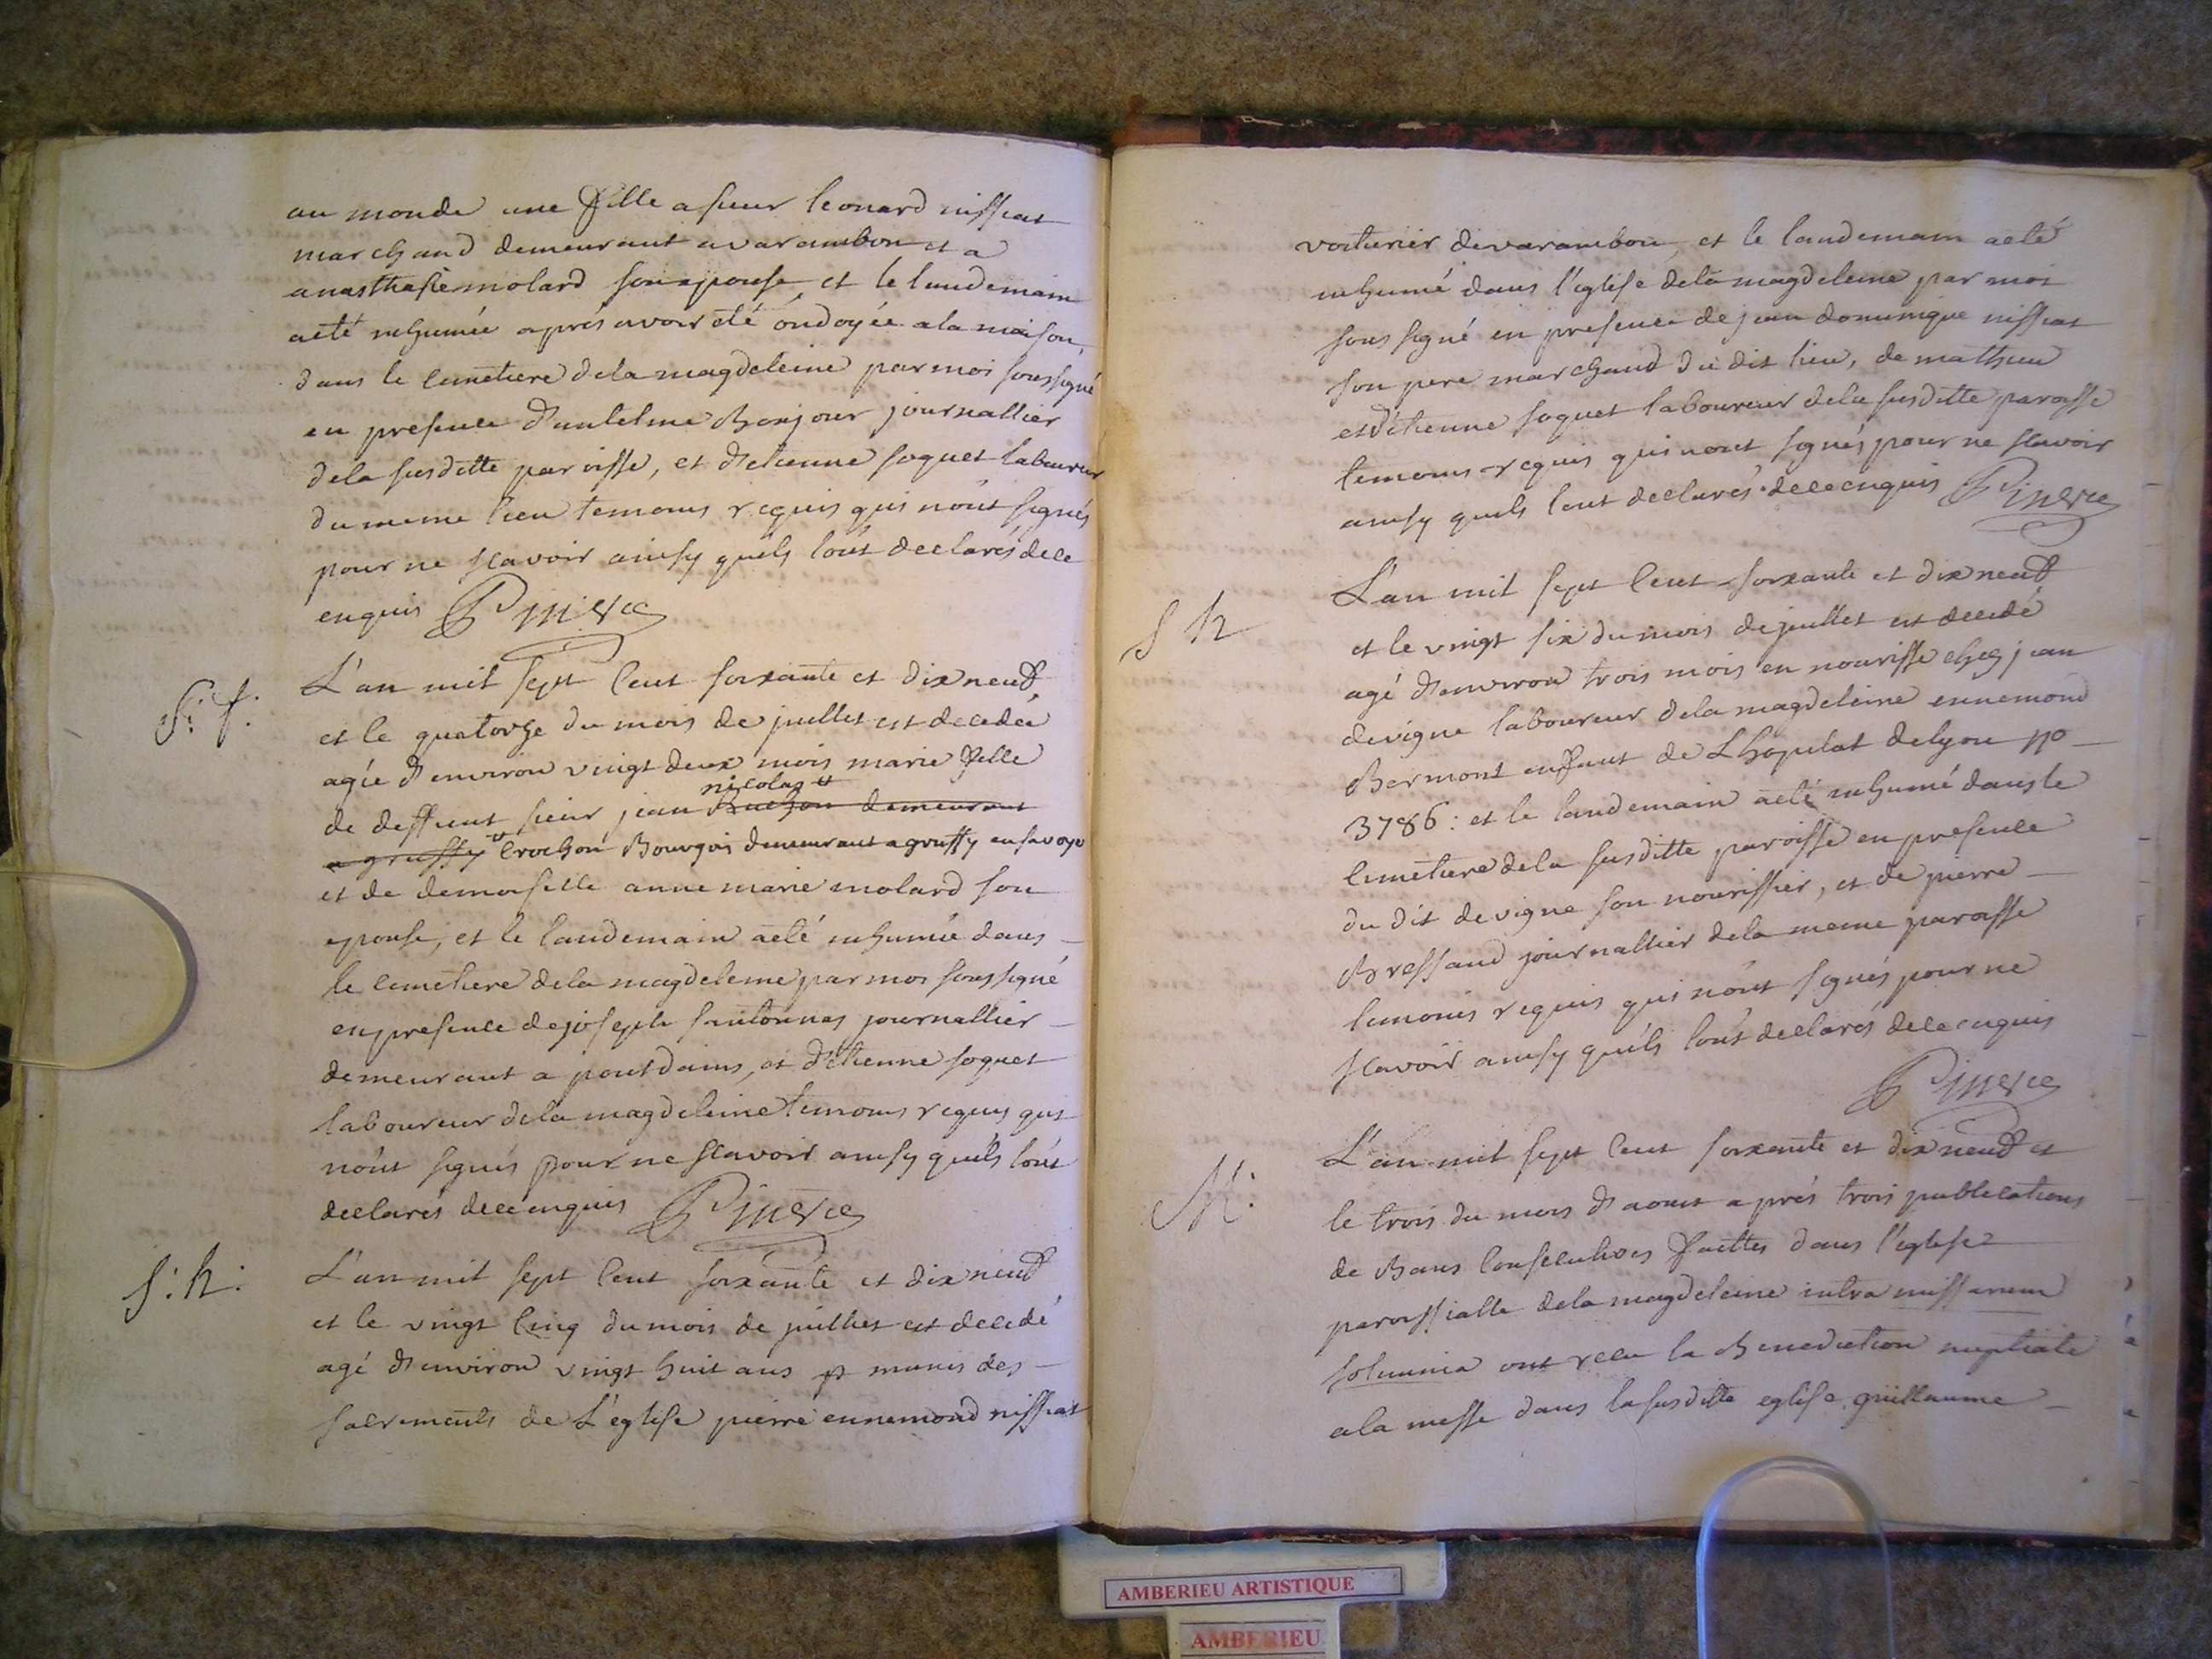 au monde une fille a sieur leonard niffiat
marchand demeurant a varambon et a
anasthasie molard son epouse, et le landemain
a eté inhumée après avoir été ondoyée a la maison,
dans le cimetiere de la magdeleine par moi soussigné
en presence d'antelme Bonjour journallier
de la susditte paroisse, et d'etienne soquet laboureur
du meme lieu temoins requis qui n'ont signés
pour ne scavoir ainsy quils l'ont declarés de ce
enquis Pinera
S: f:
L'an mil sept cent soixante et dix neuf
et le quatorze du mois de juillet est decedée
agée d'environ vingt deux mois marie fille
nicolas
de deffunt sieur jean Buchon demeurant
a gruffy Crochon Bourgois demeurant a gruffy en savoye
et de demoiselle anne marie molard son
epouse, et le landemain a eté inhumée dans
le cimetiere de la magdeleine par moi soussigné
en presence de joseph journallier
demeurant a pontdains, et d'etienne soquet
laboureur de la magdeleine temoins requis qui
n'ont signés pour ne scavoir ainsy quils l'ont
declarés de ce enquis Pinera
S: h:
L'an mil sept cent soixante et dix neuf
et le vingt cinq du mois de juillet est decedé
agé d'environ vingt huit ans munis des
sacrements de L'eglise pierre ennemond niffiat
voiturier de varambon, et le landemain a eté
inhumé dans l'eglise de la magdeleine par moi
sous signé en presence de jean dominique niffiat
son pere marchand du dit lieu, de mathieu
et d'etienne soquet laboureur de la susditte paroisse
temoins requis qui n'ont signés pour ne scavoir
ainsy quils l'ont declarés de ce enquis Pinera
S h
L'an mil sept cent soixante et dix neuf
et le vingt six du mois de juillet est decedé
agé d'environ trois mois en nourisse chez jean
devigne laboureur de la magdeleine ennemond
Bermont enfant de L'hopital de lyon no
3786: et le landemain a eté inhumé dans le
cimetiere de la susditte paroisse en presence
du dit devigne son nourissier, et de pierre
Bressand journallier de la meme paroisse
temoins requis qui n'ont signés pour ne
scavoir ainsy quils l'ont declarés de ce enquis
Pinera
M:
L'an mil sept cent soixante et dix neuf et
le trois du mois d'aoust après trois publications
de Bans consecutives faittes dans l'eglise
paroissialle de la magdeleine intra missarum
solemnia ont recu la Benediction nuptiale
a la messe dans la susditte eglise guillaume
AMBERIEU ARTISTIQUE
AMBERIEU